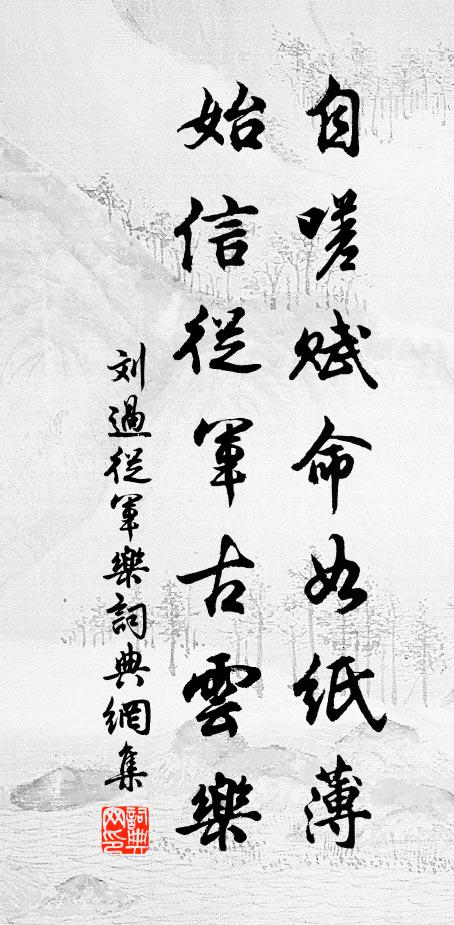 自嗟赋命如紙薄
始信從軍古雲樂
刘過從軍樂詞典網集
詞典网印